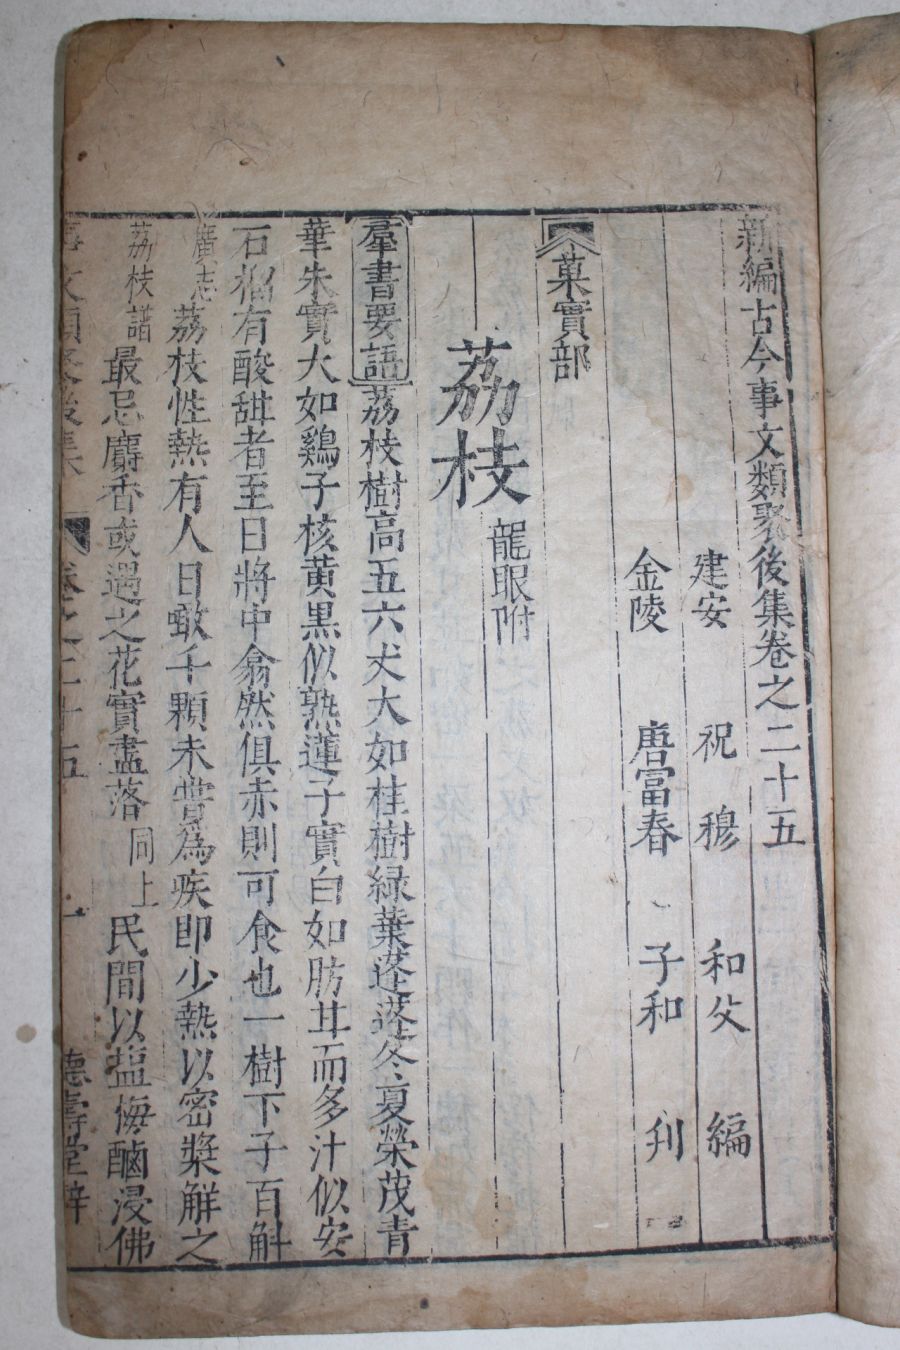 新編古今事文類聚後集卷之二十五
建安 祝穆 和父 編
金陵 唐冨春 子和 刋
菓實部
荔枝 龍眼附
羣書要語荔枝樹高五六丈大如桂樹緑葉蓬蓬冬夏榮茂青
華朱實大如鷄子核黄黒似熟蓮子實白如肪甘而多汁似安
石榴有酸甜者至日將中翕然俱赤則可食也一樹下子百斛
廣志荔枝性熱有人日噉千顆未嘗為疾即少熱以密漿解之
荔枝譜最忌麝香或遇之花實盡落同上民間以盐梅鹵浸佛
事文類聚後集 卷之二十五 一 德壽堂梓